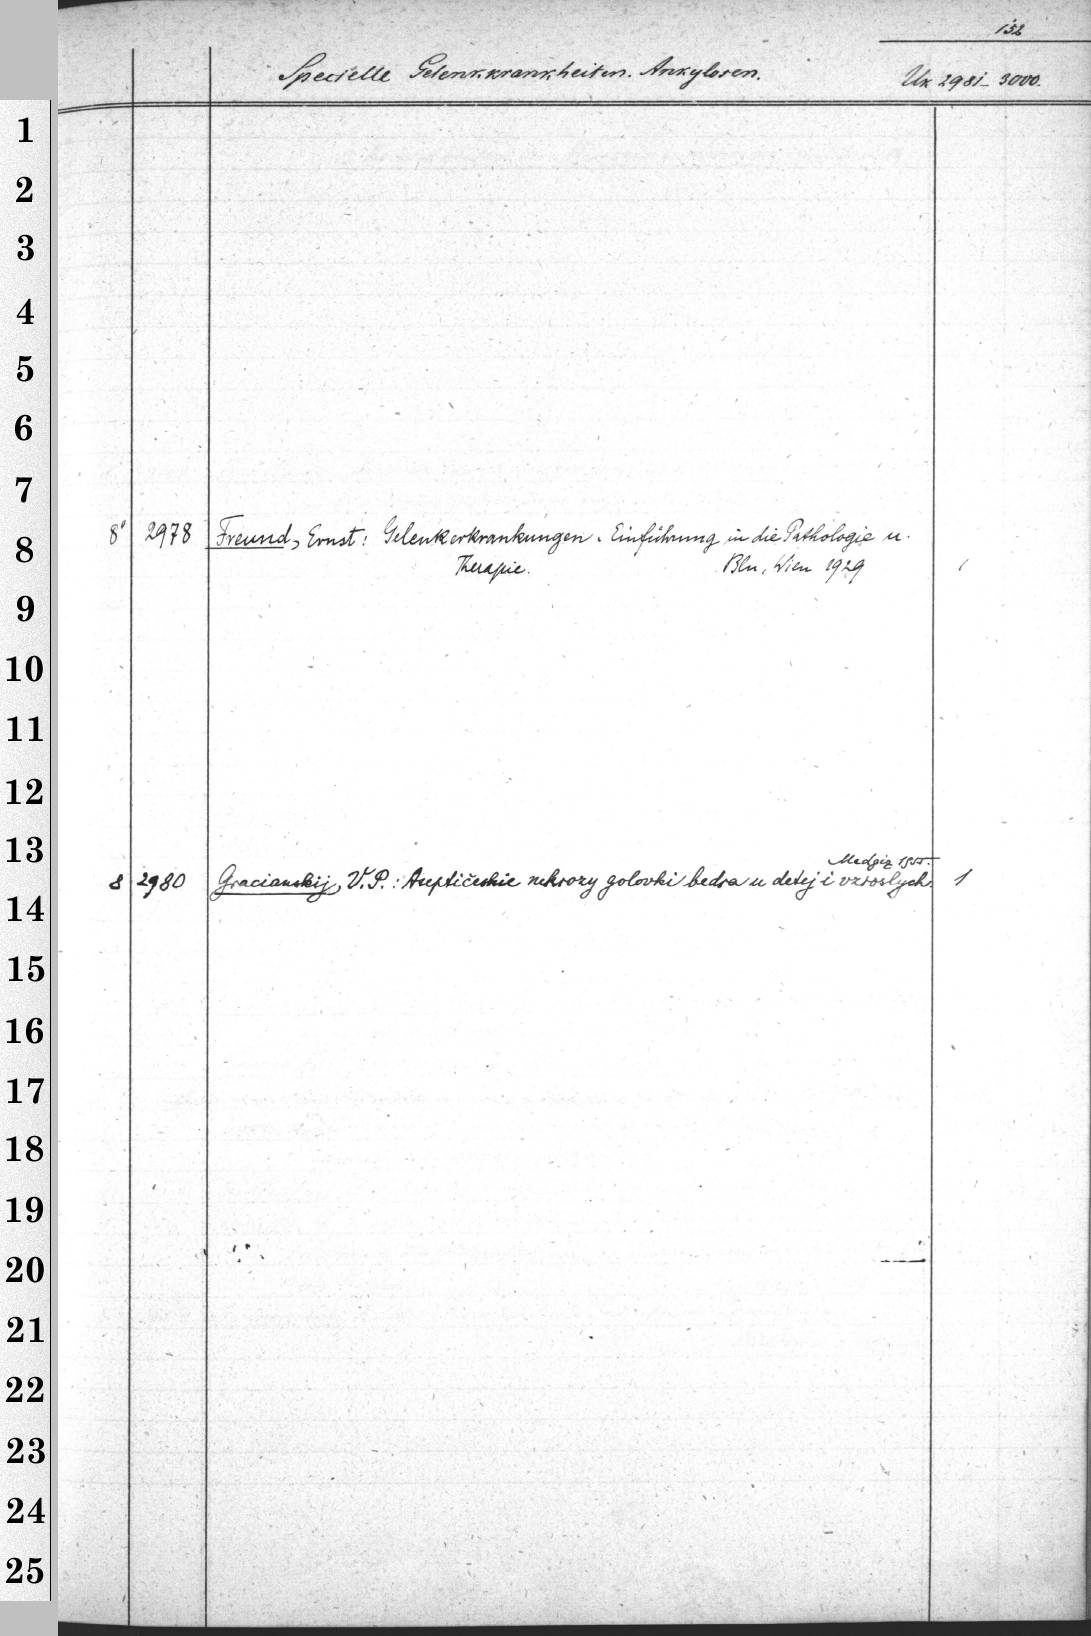 152
Specielle Gelenkkrankheiten. Ankylosen. Ux 2981-3000.
1
2
3
4
5
6
7
8' 2978 Freund, Ernst: Gelenkerkrankungen. Einführung in die Pathologie u.
8
Therapie. Bln, Wien 1929
9
10
11
12
13
Medgiz 1955.
8 2980 Gracianskij, V. P.: Aseptičeskie nekrozy golovki bedra u detej i vzroslych. 1
14
15
16
17
18
19
20
21
22
23
24
25